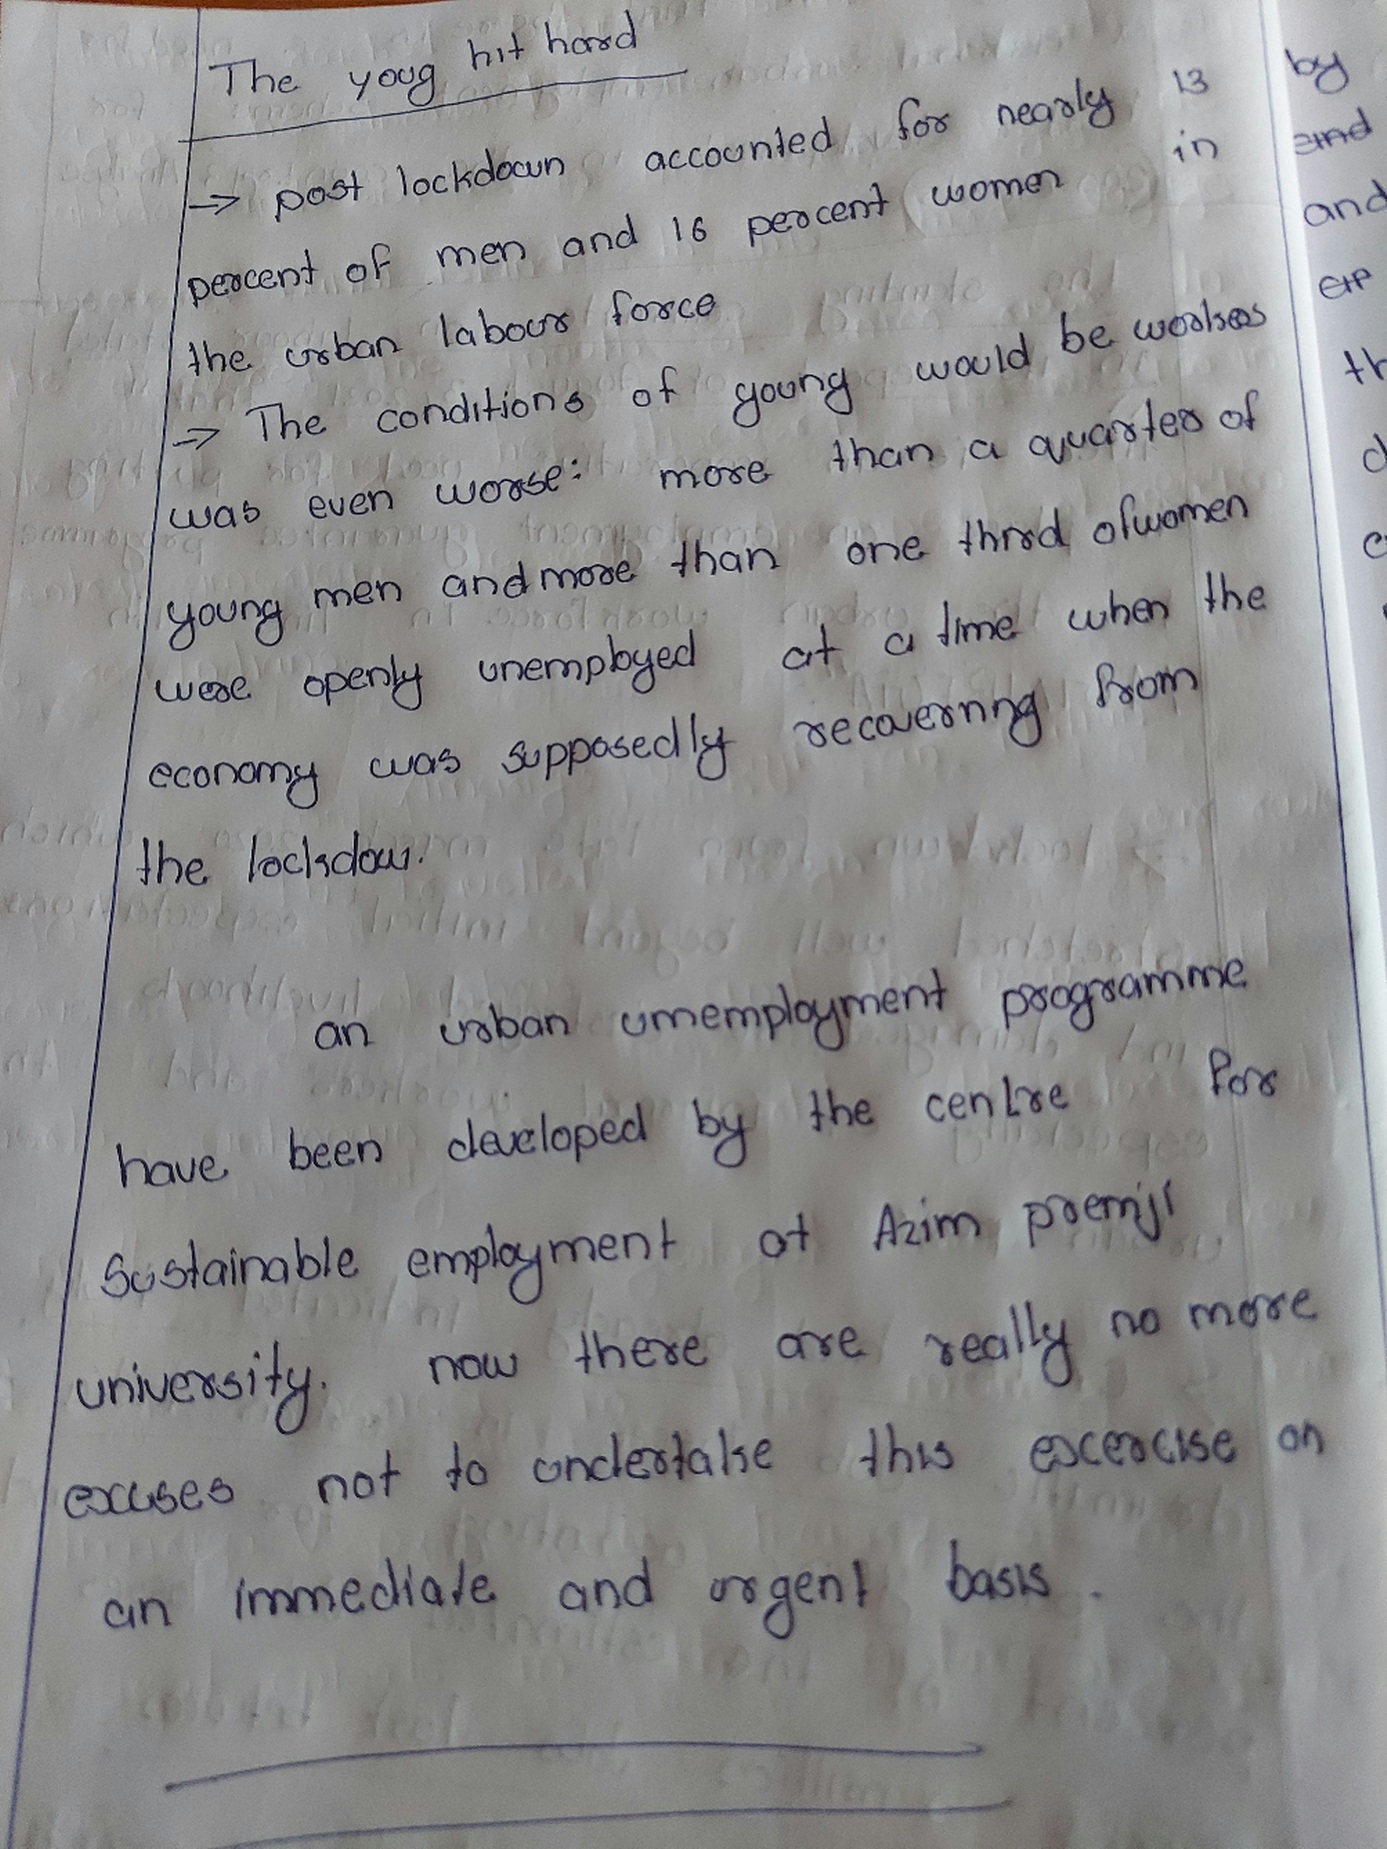 The youg hit hard
→ post lockdown accounted for nearly 13
percent of men and 16 percent women in
the urban labour force
→ The conditions of young would be workers
was even worse: more than a quarter of
young men and more than one third of women
were openly unemployed at a time when the
economy was supposedly recoverning from
the lockdow.
an urban unemployment programme
have been developed by the centre for
Sustainable employment at Azim premji
university. now there are really no more
excuses not to undertake this excercise on
an immediate and urgent basis.
by
and
and
th